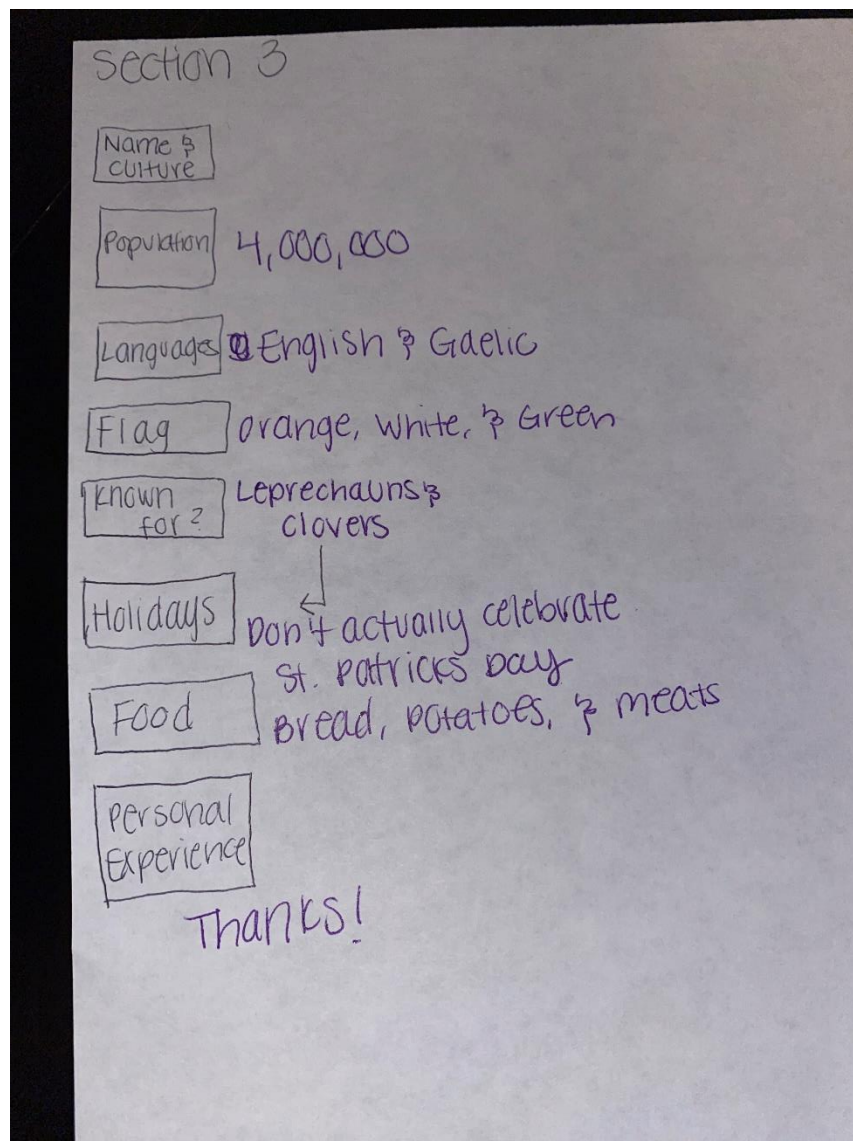 Section 3
Name &
culture
Population 4,000,000
Languages English & Gaelic
Flag Orange, White, & Green
Known Leprechauns &
for? clovers
Holidays Don't actually celebrate
St. Patricks Day
Food Bread, potatoes, & meats
Personal
Experience
Thanks!